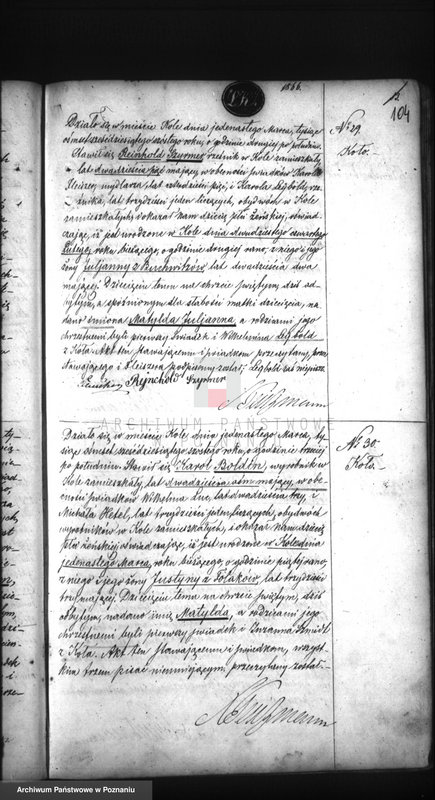 1866.
104
Nr 29
Koło.
Działo się w mieście Kole dnia jedenastego Marca, tysiąc
ośmset sześćdziesiątego szóstego roku, o godzinie drugiej po południu.
Stawił się Reinhold Szurmer rzeźnik w Kole zamieszkały
lat dwadzieścia pięć mający, w obecności świadków Karola
mydlarza, lat czterdzieści pięć, i Karola
lat trzydzieści jeden liczących, obydwóch w Kole
zamieszkałych, i okazał nam dziecię płci żeńskiej, oświad-
czając, iż jest urodzone w Kole dnia dwudziestego czwartego
Lutego, roku bieżącego, o godzinie drugiej rano, z niego i jego
żony Juljanny z lat dwadzieścia dwa
mającej. Dziecięciu temu na chrzcie świętym, dziś od-
bytym, a spóźnionym dla słabości matki dziecięcia, na-
dano imiona Matylda Juljanna, a rodzicami jego
chrzestnemi byli pierwszy świadek i Wilhelmina
z Koła. Akt ten stawającemu i świadkom przeczytany, przez
stawającego i podpisany został,
Nr 30.
Koło.
Działo się w mieście Kole dnia jedenastego Marca, ty-
siąc ośmset sześćdziesiątego szóstego roku, o godzinie trzeciej
po południu. Stawił się Karol Boldin, wyrobnik w
Kole zamieszkały, lat dwadzieścia ośm mający, w obe-
cności świadków Wilhelma lat dwadzieścia trzy, i
Michała lat trzydzieści jeden liczących, obydwóch
wyrobników w Kole zamieszkałych, i okazał nam dziecię
płci żeńskiej, oświadczając, iż jest urodzone w Kole dnia
jedenastego Marca, roku bieżącego, o godzinie piątej rano,
z niego i jego żony Justyny z Polaków, lat trzydzieści
trzy mającej. Dziecięciu temu na chrzcie świętym, dziś
odbytym, nadano imię Matylda, a rodzicami jego
chrzestnemi byli pierwszy świadek i Zuzanna Szmidt
z Koła. Akt ten stawającemu i świadkom, wszyst-
kim trzem pisać nieumiejącym, przeczytany został.
ARCHIWUM PAŃSTWOWE
Archiwum Państwowe w Poznaniu